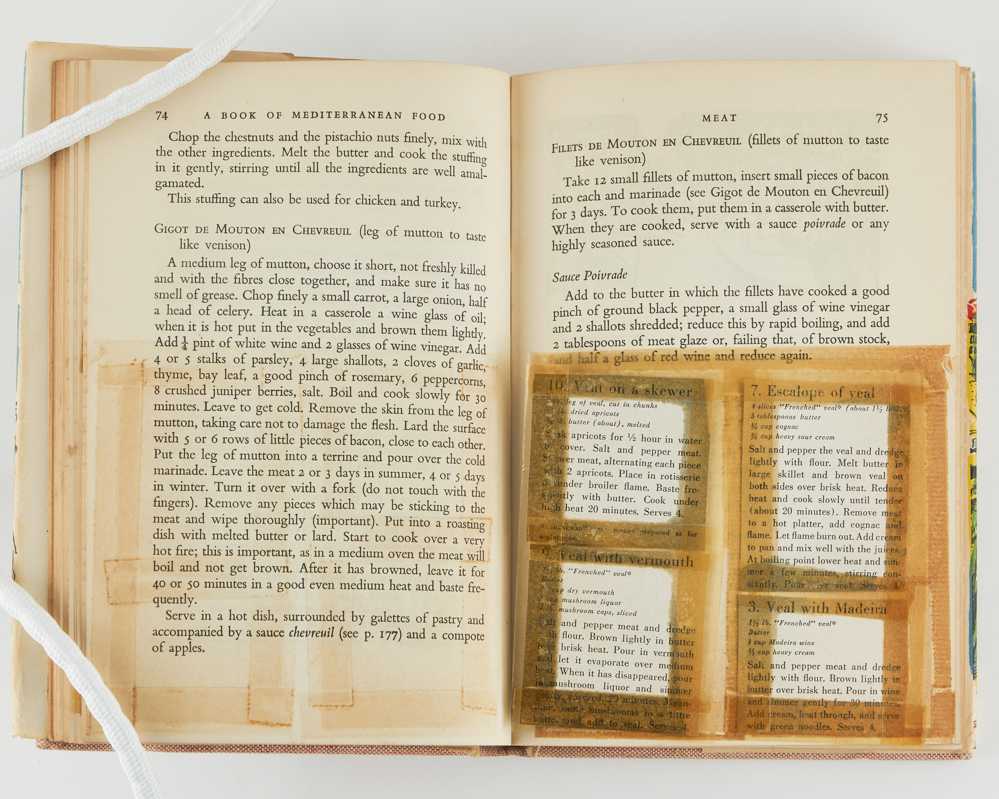 74 A BOOK OF MEDITERRANEAN FOOD
Chop the chestnuts and the pistachio nuts finely, mix with
the other ingredients. Melt the butter and cook the stuffing
in it gently, stirring until all the ingredients are well amal-
gamated.
This stuffing can also be used for chicken and turkey.
GIGOT DE MOUTON EN CHEVREUIL (leg of mutton to taste
like venison)
A medium leg of mutton, choose it short, not freshly killed
and with the fibres close together, and make sure it has no
smell of grease. Chop finely a small carrot, a large onion, half
a head of celery. Heat in a casserole a wine glass of oil;
when it is hot put in the vegetables and brown them lightly.
Add ¼ pint of white wine and 2 glasses of wine vinegar. Add
4 or 5 stalks of parsley, 4 large shallots, 2 cloves of garlic,
thyme, bay leaf, a good pinch of rosemary, 6 peppercorns,
8 crushed juniper berries, salt. Boil and cook slowly for 30
minutes. Leave to get cold. Remove the skin from the leg of
mutton, taking care not to damage the flesh. Lard the surface
with 5 or 6 rows of little pieces of bacon, close to each other.
Put the leg of mutton into a terrine and pour over the cold
marinade. Leave the meat 2 or 3 days in summer, 4 or 5 days
in winter. Turn it over with a fork (do not touch with the
fingers). Remove any pieces which may be sticking to the
meat and wipe thoroughly (important). Put into a roasting
dish with melted butter or lard. Start to cook over a very
hot fire; this is important, as in a medium oven the meat will
boil and not get brown. After it has browned, leave it for
40 or 50 minutes in a good even medium heat and baste fre-
quently.
Serve in a hot dish, surrounded by galettes of pastry and
accompanied by a sauce chevreuil (see p. 177) and a compote
of apples.
MEAT 75
FILETS DE MOUTON EN CHEVREUIL (fillets of mutton to taste
like venison)
Take 12 small fillets of mutton, insert small pieces of bacon
into each and marinade (see Gigot de Mouton en Chevreuil)
for 3 days. To cook them, put them in a casserole with butter.
When they are cooked, serve with a sauce poivrade or any
highly seasoned sauce.
Sauce Poivrade
Add to the butter in which the fillets have cooked a good
pinch of ground black pepper, a small glass of wine vinegar
and 2 shallots shredded; reduce this by rapid boiling, and add
2 tablespoons of meat glaze or, failing that, of brown stock,
and half a glass of red wine and reduce again.
10. Veal on a skewer
leg of veal, cut in chunks
dried apricots
butter (about), melted
apricots for ½ hour in water
cover. Salt and pepper meat.
meat, alternating each piece
with 2 apricots. Place in rotisserie
under broiler flame. Baste fre-
quently with butter. Cook under
high heat 20 minutes. Serves 4.
Veal with vermouth
"Frenched" veal*
Butter
dry vermouth
mushroom liquor
mushroom caps, sliced
Salt and pepper meat and dredge
with flour. Brown lightly in butter
over brisk heat. Pour in vermouth
and let it evaporate over medium
heat. When it has disappeared, pour
in mushroom liquor and simmer
minutes. Mean-
mushrooms in a little
butter and add to veal. Serves 4.
7. Escalope of veal
4 slices "Frenched" veal* (about 1½ lbs.)
3 tablespoons butter
cup cognac
cup heavy sour cream
Salt and pepper the veal and dredge
lightly with flour. Melt butter in
large skillet and brown veal on
both sides over brisk heat. Reduce
heat and cook slowly until tender
(about 20 minutes). Remove meat
to a hot platter, add cognac and
flame. Let flame burn out. Add cream
to pan and mix well with the juices.
At boiling point lower heat and sim-
mer a few minutes, stirring con-
stantly. Pour over veal. Serves 4.
3. Veal with Madeira
1½ lb. "Frenched" veal*
Butter
cup Madeira wine
cup heavy cream
Salt and pepper meat and dredge
lightly with flour. Brown lightly in
butter over brisk heat. Pour in wine
and simmer gently for 30 minutes.
Add cream, heat through, and serve
with green noodles. Serves 4.